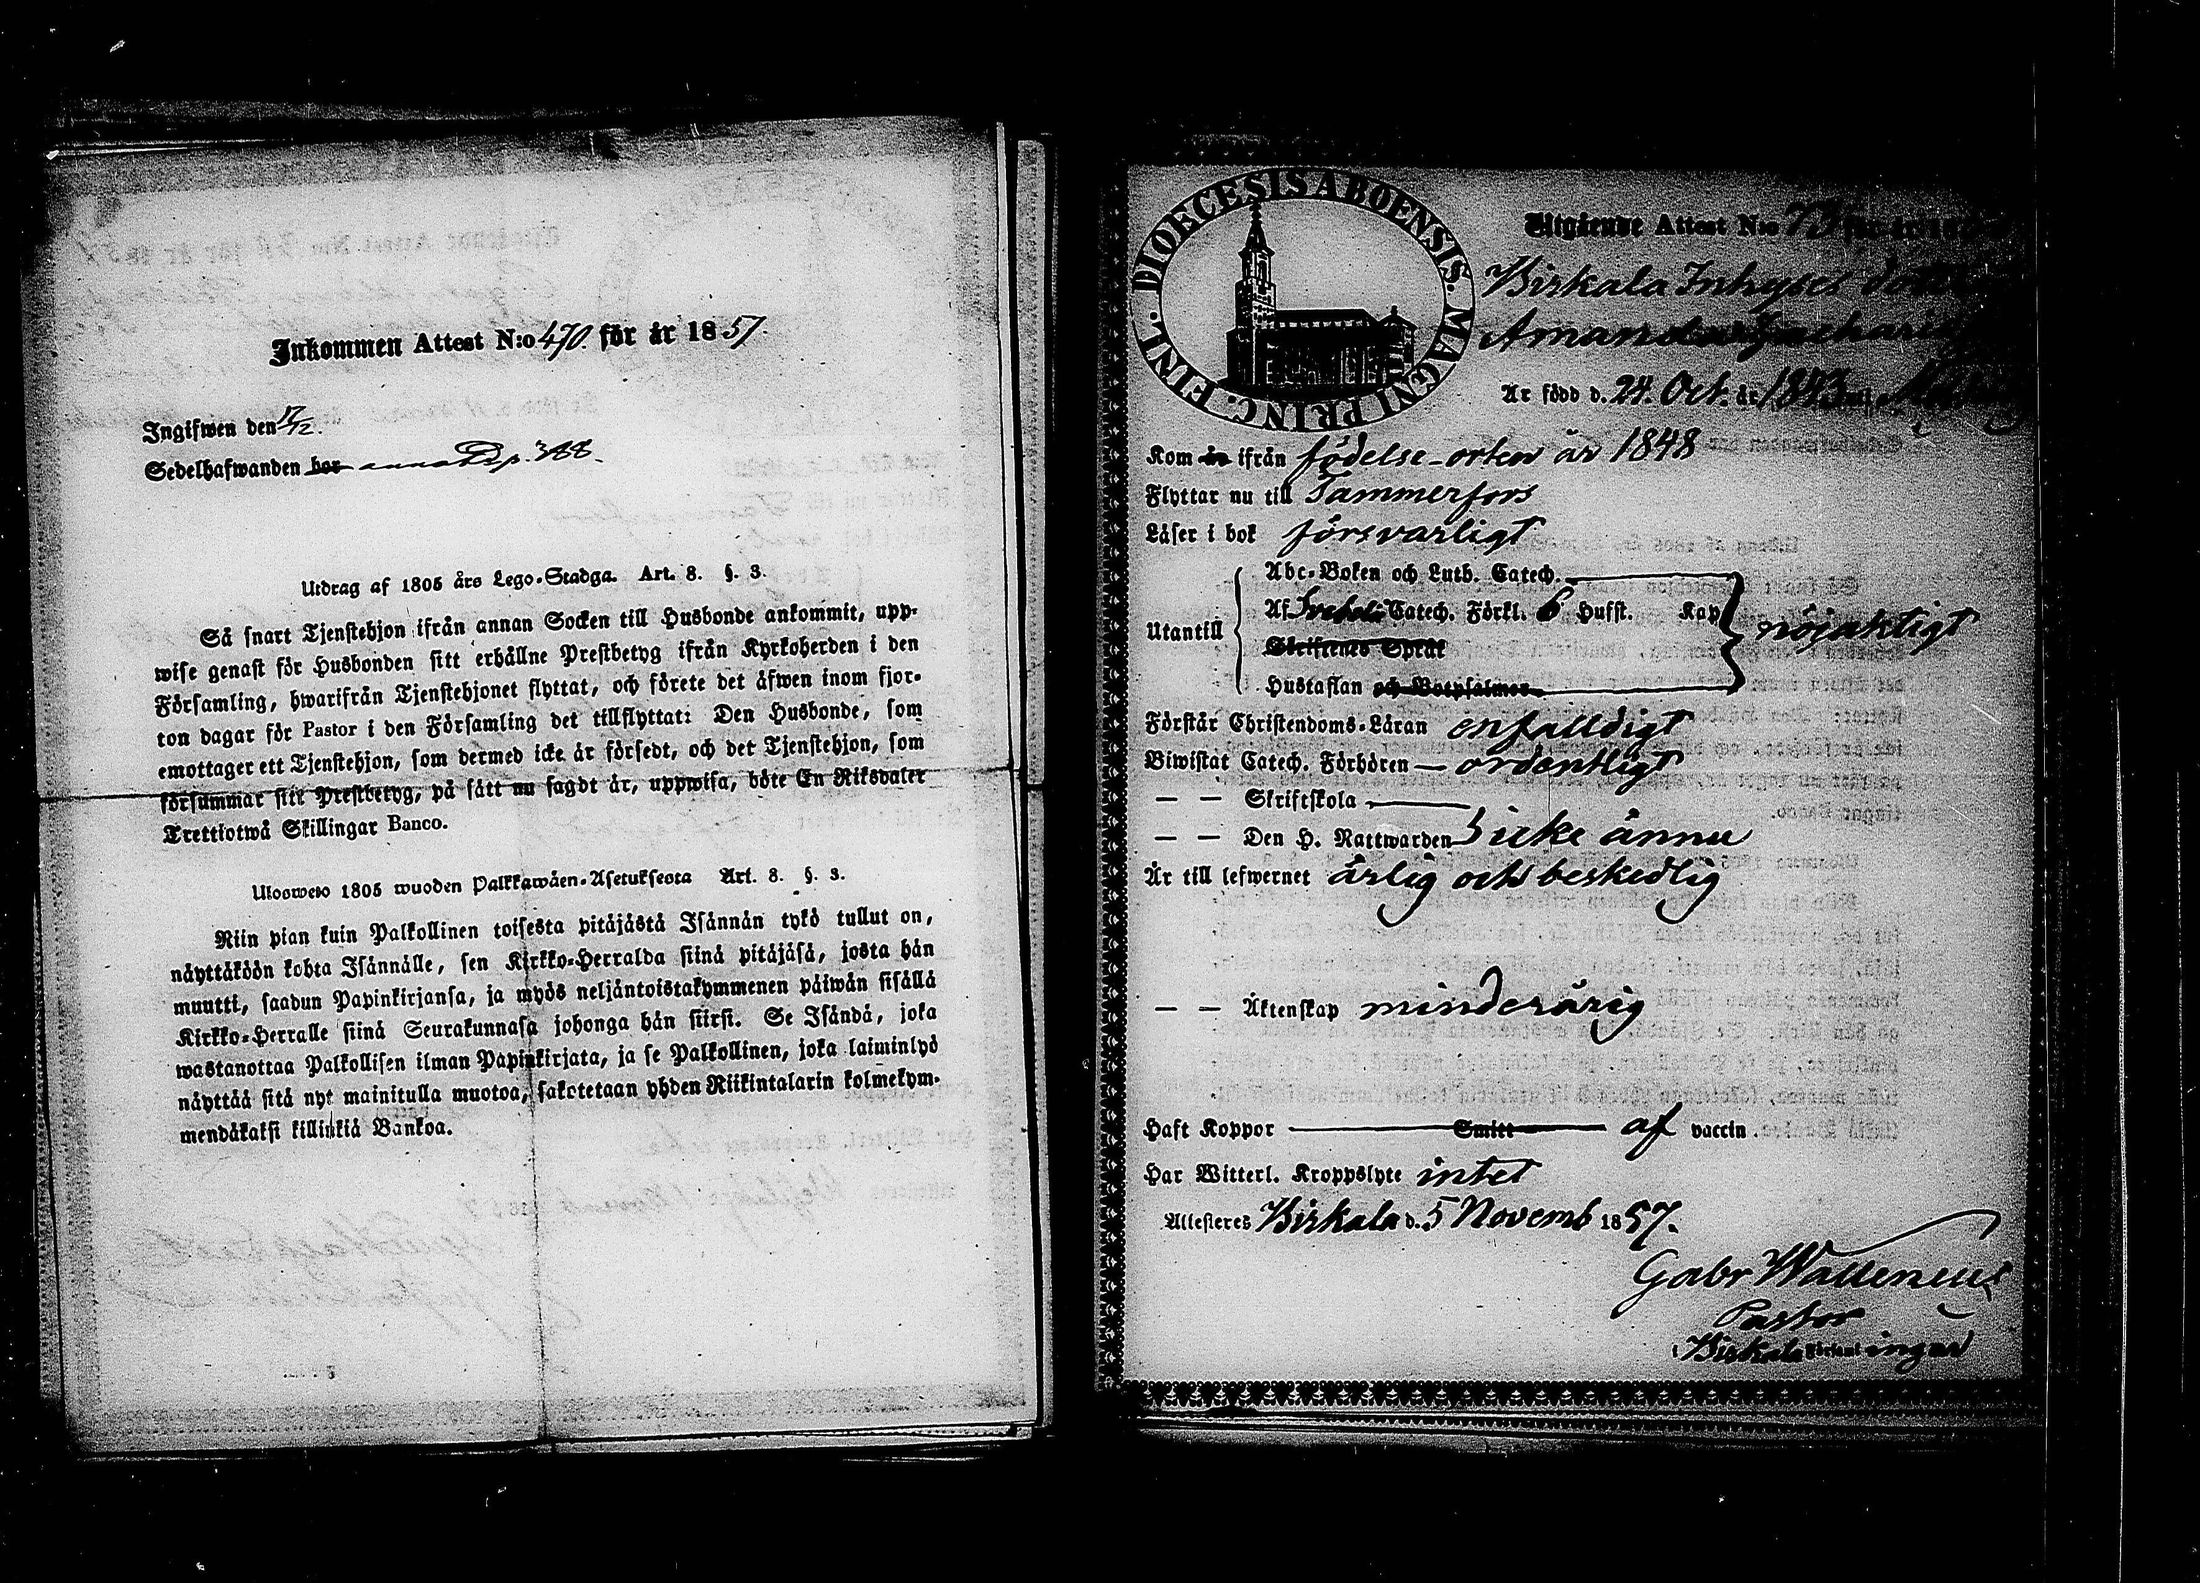 Inkommen Attest N:o 470. för år 1857.
Ingifwen den 17/12.
Sedelhafwanden bor anna Dsp. 388.
Utdrag af 1805 års Lego-Stadga. Art. 8. §. 3.
Så snart Tjenstehjon ifrån annan Socken till Husbonde ankommit, upp-
wise genast för Husbonden sitt erhållne Prestbetyg ifrån Kyrkoherden i den
Församling, hwarifrån Tjenstehjonet flyttat, och förete det äfwen inom fjor-
ton dagar för Pastor i den Församling det tillflyttat: Den Husbonde, som
emottager ett Tjenstehjon, som dermed icke är försedt, och det Tjenstehjon, som
försummar sitt Prestbetyg, på sätt nu sagdt är, uppwisa, böte En Riksdaler
Trettiotwå Skillingar Banco.
Uloswето 1805 wuoden Palkkawäen-Asetuksesta Art. 8. §. 3.
Niin pian kuin Palkollinen toisesta pitäjästä Isännän tykö tullut on,
näyttäköön kohta Isännälle, sen Kirkko-Herralda siinä pitäjäsä, josta hän
muutti, saadun Papinkirjansa, ja myös neljäntoistakymmenen päiwän sisällä
Kirkko-Herralle siinä Seurakunnasa johonga hän siirsi. Se Isändä, joka
wastanottaa Palkollisen ilman Papinkirjata, ja se Palkollinen, joka laiminlyö
näyttää sitä nyt mainitulla muotoa, sakotetaan yhden Riikintalarin kolmekym-
mendäkaksi killinkiä Bankoa.
DIOECESIS ABOENSIS. MAGNI PRINC. FINL.
Utgående Attest N:o 73 för år 18
Birkala Inhyses
Amanda
Är född d. 24. Oct. år 1843 i
Kom in ifrån födelse-orten år 1848
Flyttar nu till Tammerfors
Läser i bok försvarligt
Abc-Boken och Luth. Catech.
Af Svebeli Catech. Förkl. 6 Hufst. Kap
Utantill nöjaktigt
Skriftenes Språk
Hustaflan och Botpsalmer
Förstår Christendoms-Läran enfalldigt
Biwistat Catech. Förhören — ordentligt
— — Skriftskola
— — Den H. Nattwarden icke ännu
Är till lefwernet ärlig och beskedlig
— — Äktenskap minderårig
Haft Koppor Smitt af vaccin.
Har Witterl. Kroppslyte intet
Attesteres Birkala d. 5 Novemb 1857.
Gabr Wallenius
Pastor
i Birkala Församlingar